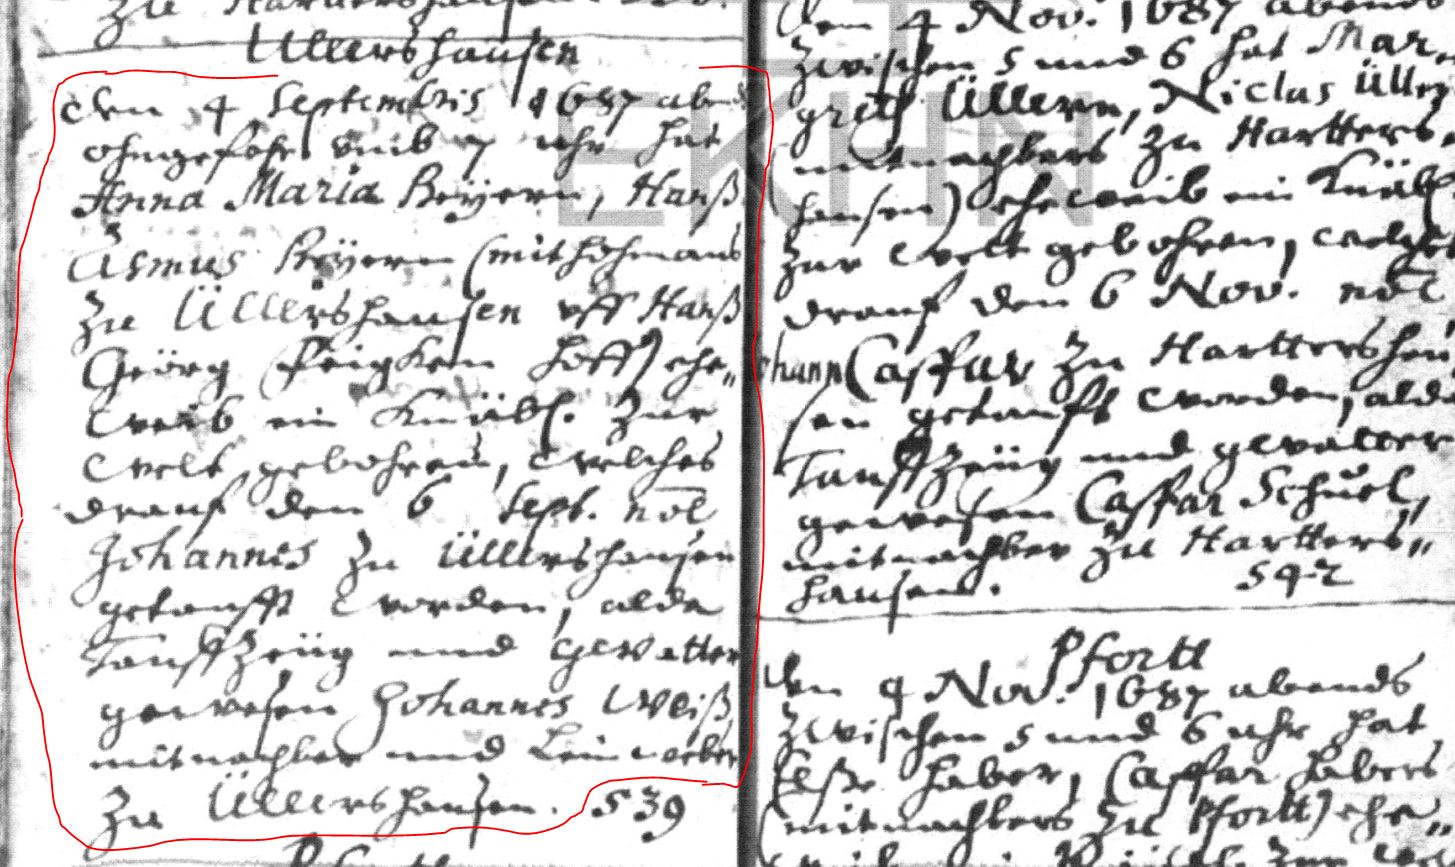 Zu Harttershausen
Üllershausen
den 4 Septembris 1687 abends
ohngefehr umb 7 uhr hat
Anna Maria Beÿern, Hanß
Asmus Beÿern (mithohmans
Zu Üllershausen uff Hanß
Georg hoff) ehe„
weib ein Knäbl. Zur
welt gebohren, welches
drauf den 6 Sept. nõe
Johannes Zu Üllershausen
getaufft worden, alda
TauffZeüg und gevatter
gewesen Johannes Weiß,
mitnachber und Leinweber
Zu Üllershausen. 539
den 4 Nov. 1687 abends
Zwischen 5 und 6 hat Mar„
greth Üllern, Niclas Üllers
mitnachbers Zu Hartters„
hausen) eheweib ein Knäbl.
Zur welt gebohren, welches
drauf den 6 Nov. nõe
Johann Casspar Zu Harttershau„
sen getaufft worden, alda
TauffZeüg und gevatter
gewesen Casspar Schüel,
mitnachber Zu Hartters„
hausen. 542
Pfortt
den 4 Nov. 1687 abends
Zwischen 5 und 6 uhr hat
Elße haber, Casspar habers
(mitnachbers Zu Pfortt) ehe„
EKHN